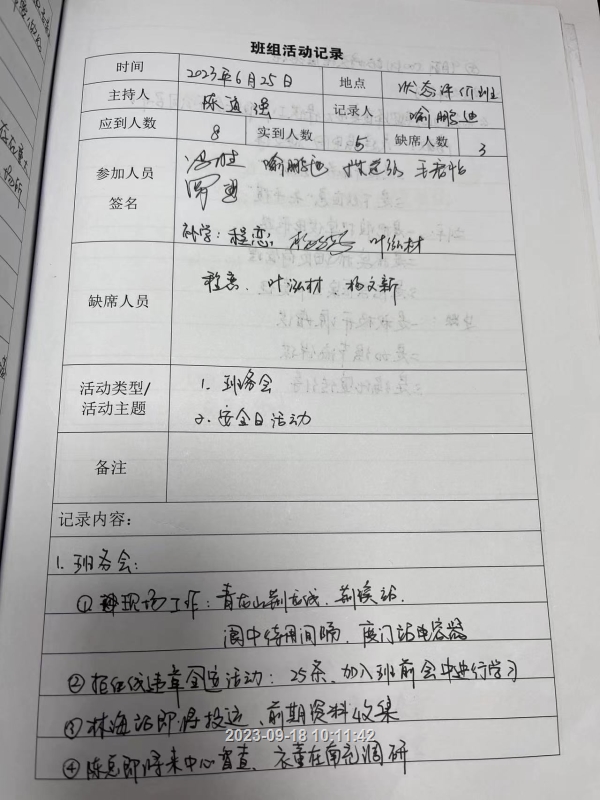 班组活动记录
时间 2023年6月25日 地点 状态评价班
主持人 陈道强 记录人 喻鹏迪
应到人数 8 实到人数 5 缺席人数 3
参加人员 喻鹏迪
签名
补学：程恋 叶泓材
缺席人员 程恋、叶泓材 杨文新
活动类型/ 1. 班务会
活动主题 2. 安全日活动
备注
记录内容：
1. 班务会：
① 现场工作：青龙山 荆溪站、
阆中备用间隔、度门站电容器
② 违章 活动：25条，加入班前会中进行学习
③ 林海站即将投运、前期资料收集
④ 陈总即将来中心督查、 在南充调研
2023-09-18 10:11:42